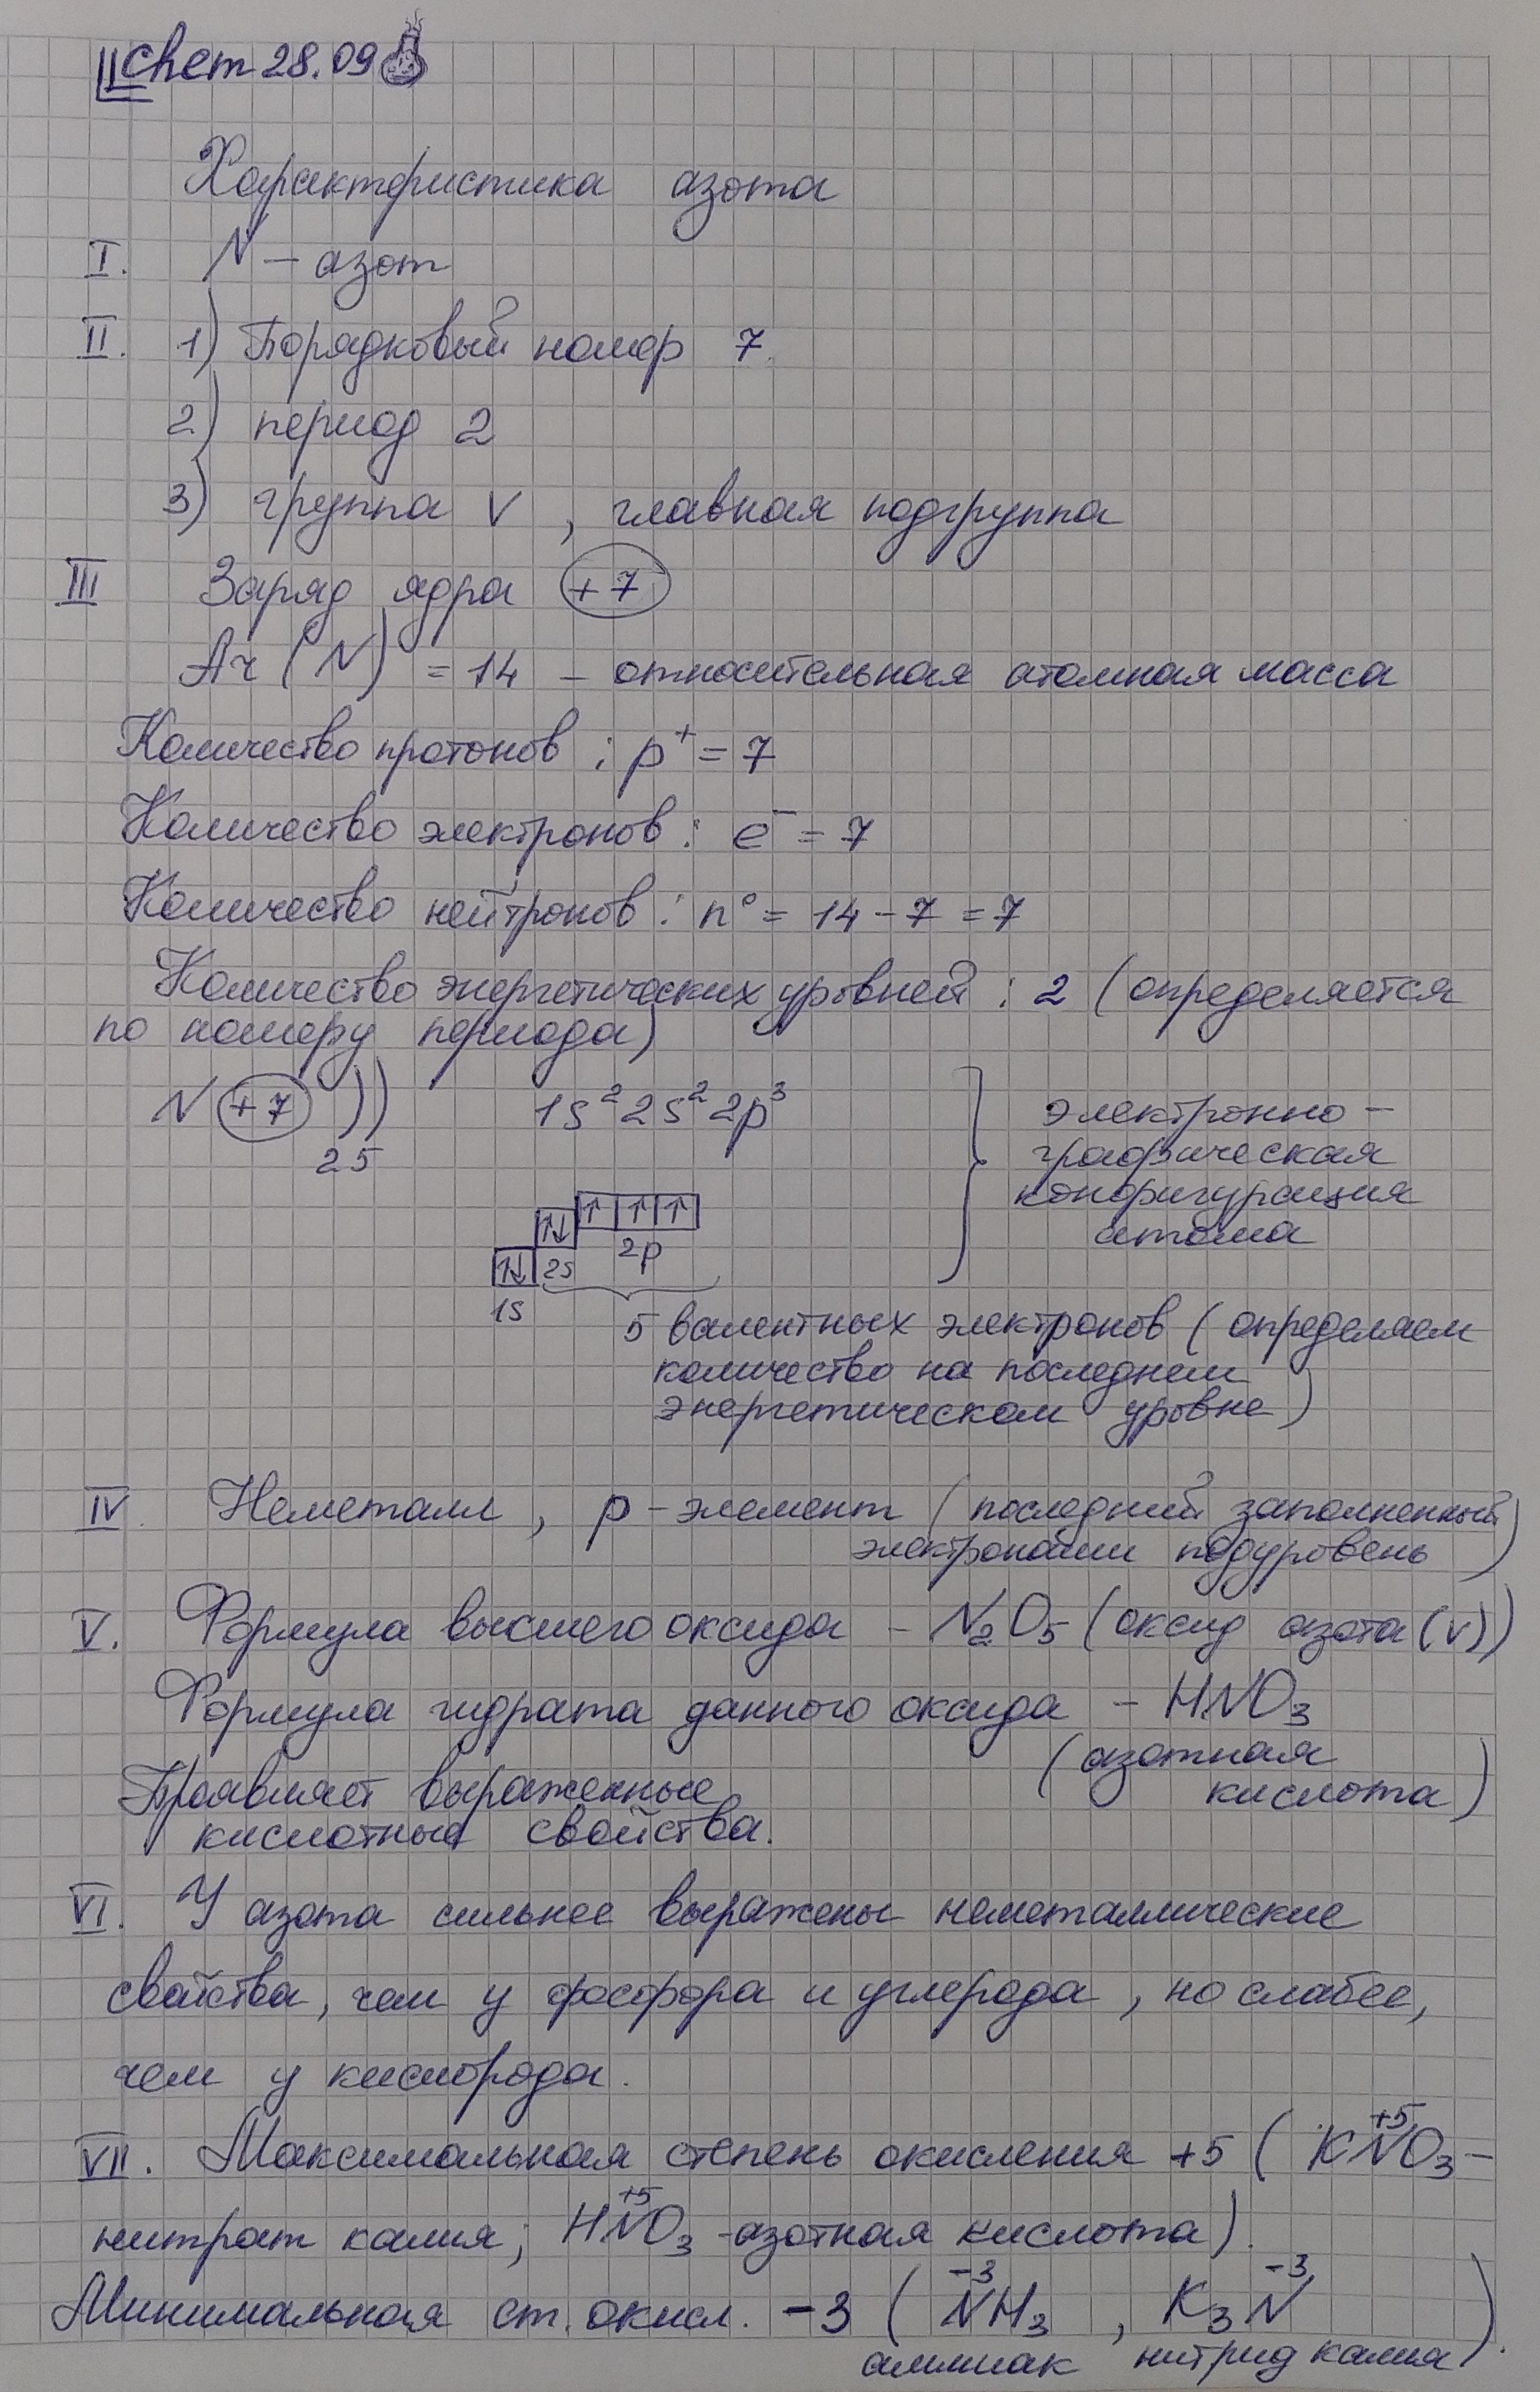 Chem 28.09
Характеристика азота
I. N – азот
II. 1) Порядковый номер 7.
2) период 2
3) группа V , главная подгруппа
III Заряд ядра +7
Ar (N) = 14 – относительная атомная масса
Количество протонов : p⁺ = 7
Количество электронов : e⁻ = 7
Количество нейтронов : n⁰ = 14 – 7 = 7
Количество энергетических уровней : 2 (определяется
по номеру периода)
N +7 ) ) 1s² 2s² 2p³
2 5
электронно –
графическая
конфигурация
атома
↑ ↑ ↑
↑↓ 2p
↑↓ 2s
1s
5 валентных электронов ( определяем
количество на последнем
энергетическом уровне )
IV. Неметалл , p – элемент ( последний заполненный
электронами подуровень )
V. Формула высшего оксида – N₂O₅ ( оксид азота (V) )
Формула гидрата данного оксида – HNO₃
( азотная
кислота )
Проявляет выраженные
кислотные свойства.
VI. У азота сильнее выражены неметаллические
свойства, чем у фосфора и углерода , но слабее,
чем у кислорода.
VII. Максимальная степень окисления +5 ( KN⁺⁵O₃ –
нитрат калия; HN⁺⁵O₃ - азотная кислота ).
Минимальная ст. окисл. –3 ( N⁻³H₃ , K₃N⁻³ ).
аммиак нитрид калия